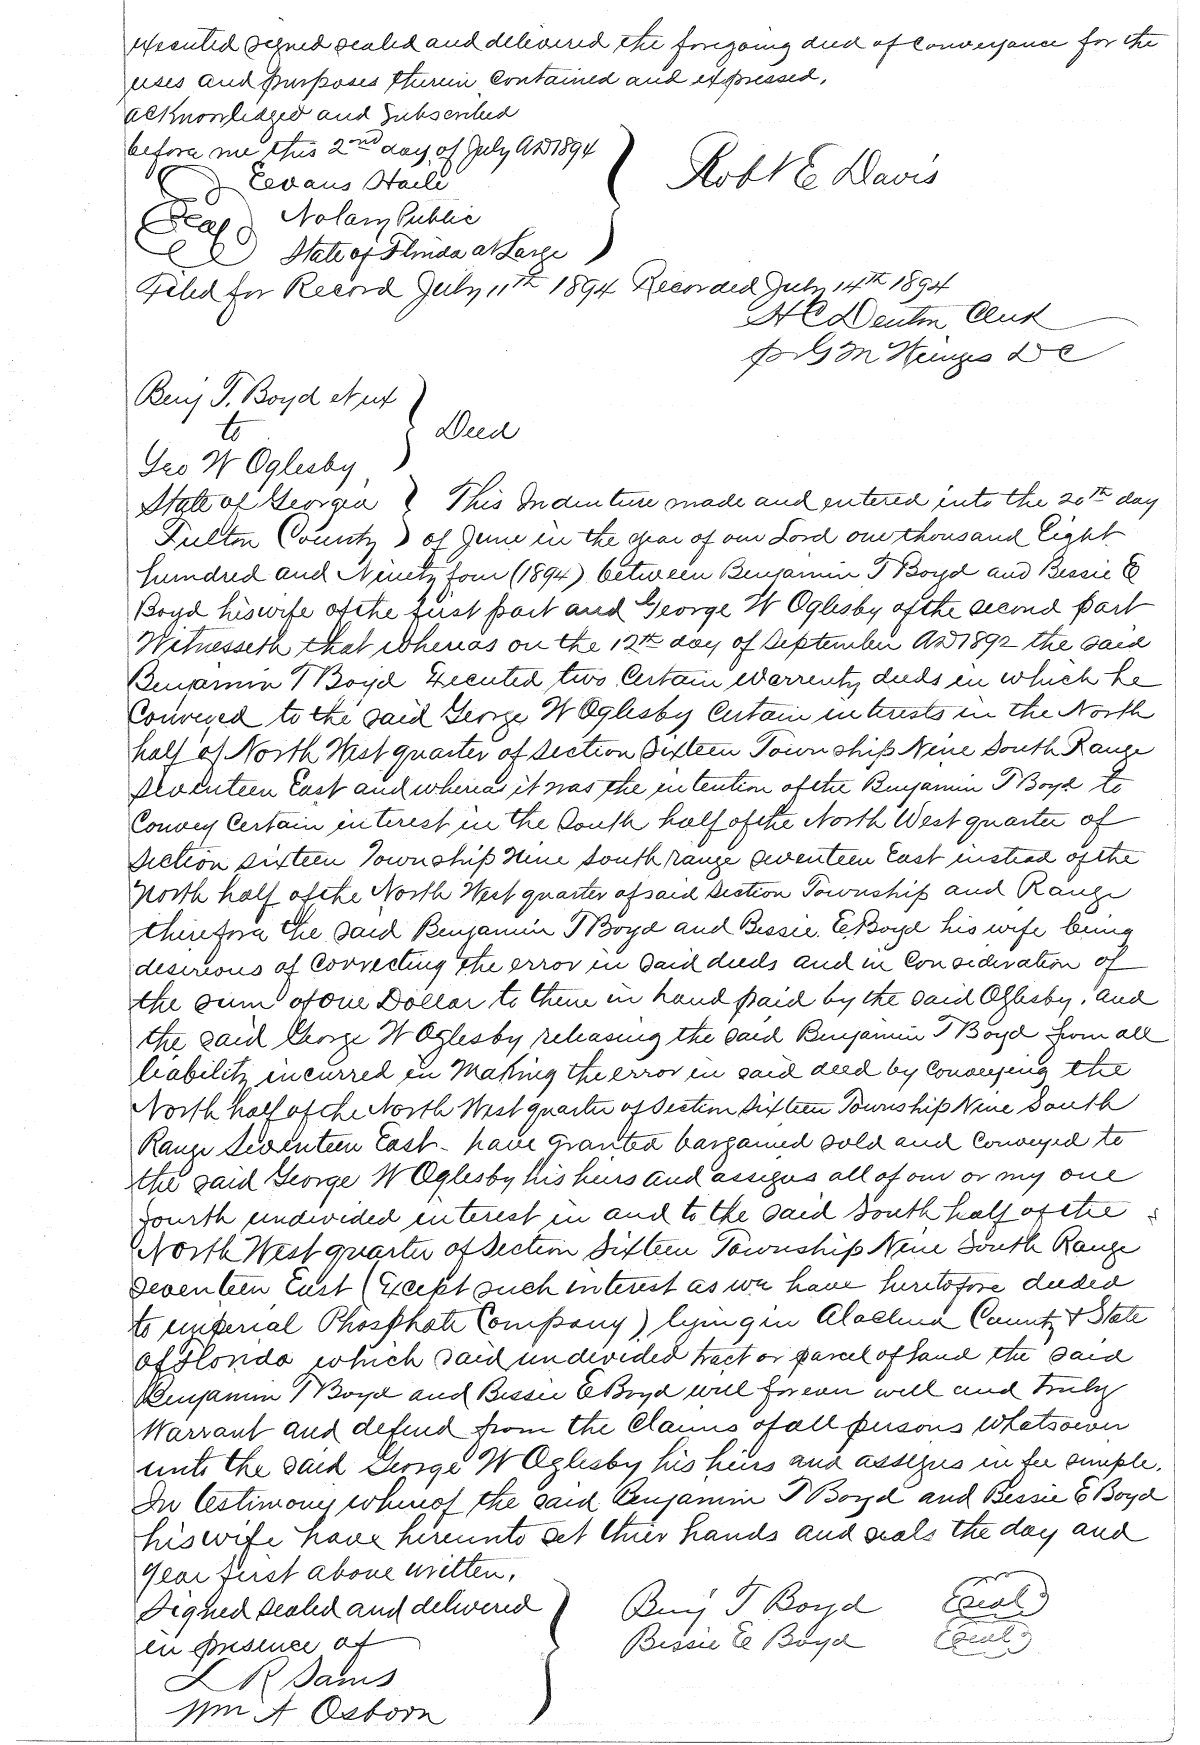 executed signed sealed and delivered the foregoing deed of conveyance for the
uses and purposes therein contained and expressed.
acknowledged and subscribed
before me this 2nd day of July AD 1894
Robt E Davis
Eevans Haile
Seal Notary Public
State of Florida at Large
Filed for Record July 11th 1894 Recorded July 14th 1894
H C Denton Clerk
pr G M D C
Benj T. Boyd et ux
to
Deed
Geo W Oglesby
State of Georgia } This Indenture made and entered into the 20th day
Fulton County } of June in the year of our Lord one thousand Eight
hundred and Ninety four (1894) between Benjamin T Boyd and Bessie E
Boyd his wife of the first part and George W Oglesby of the second part
Witnesseth that whereas on the 12th day of September AD 1892 the said
Benjamin T Boyd Executed two Certain warrenty deeds in which he
Conveyed to the said George W Oglesby Certain interests in the North
half of North West quarter of Section Sixteen Township Nine South Range
seventeen East and whereas it was the intention of the Benjamin T Boyd to
Convey Certain interest in the South half of the North West quarter of
Section sixteen Township Nine South range seventeen East instead of the
North half of the North West quarter of said Section Township and Range
therefore the said Benjamin T Boyd and Bessie. E. Boyd his wife being
desireous of Correcting the error in said deeds and in Consideration of
the sum of one Dollar to them in hand paid by the said Oglesby. and
the said George W Oglesby releasing the said Benjamin T Boyd from all
liability incurred in Making the error in said deed by Conveying the
North half of the North West quarter of Section Sixteen Township Nine South
Range Seventeen East- have granted bargained sold and Conveyed to
the said George W Oglesby his heirs and assigns all of our or my one
fourth undivided interest in and to the said South half of the
North West quarter of Section Sixteen Township Nine South Range
seventeen East (Except such interest as we have heretofore deeded
to imperial Phosphate Company) lying in Alachua County & State
of Florida which said undivided tract or parcel of land the said
Benjamin T Boyd and Bessie E Boyd will forever well and truly
Warrant and defend from the Claims of all persons whatsoever
unto the said George W Oglesby his heirs and assigns in fee simple.
In testimony whereof the said Benjamin T Boyd and Bessie E Boyd
his wife have hereunto set thier hands and seals the day and
year first above written.
Signed sealed and delivered } Benj T Boyd (Seal)
in presence of Bessie E Boyd (Seal)
L R Sams
Wm A Osborn